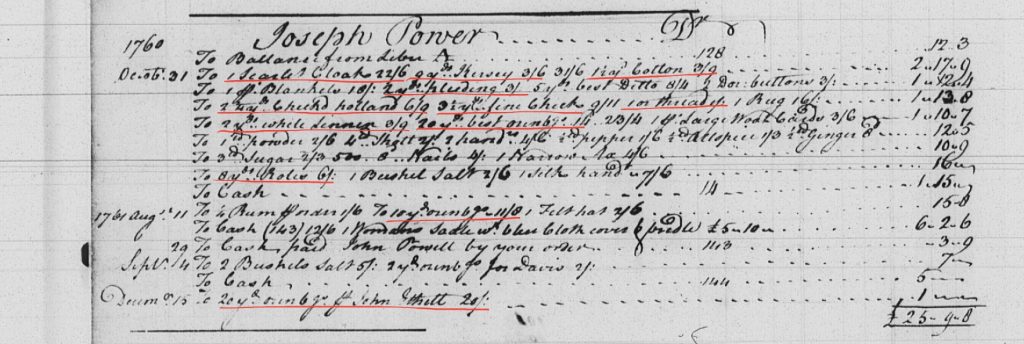 1760 Joseph Power Dr
To Ballance from Liber A 128 12.3
Decob. 31 To 1 Scarlet Cloak 22/6 9 yds Kersey 3/6 31/6 1½ yd Cotton 3/9 2..17..9
To 1 pr Blankets 18/: 2 yds 3/ 5 yds best Ditto 8/4 ½ Doz: buttons 3/: 1..12..4
To 2¼ yds Check'd holland 6/9 3½ yds fine Check 9/11 1 oz thread 1 Rug 16/: 1..13..8
To 2 yds white Linnen 3/9 20 yds best ozunbgs 14 23/4 1 pr Large Wool Cards 3/6 1..10..7
To 1 d powder 2/6 4 d Shott 2/: 2 hand 4/6 ½ d pepper 1/6 ½ d Allspice 1/3 ½ d Ginger 8 12..5
To 3 d Sugar 2/3 500 8 Nails 4/: 1 Narrow Ax 4/6 10..9
To 8 yds Rolls 6/: 1 Bushel Salt 2/6 1 Silk hand 7/6 16
To Cash 14 1..15
1761 Aug. 11 To 4 Rum 1/6 To 10 yds ozunbgs 11/8 1 Felt hat 2/6 15..8
To Cash (143) 12/6 1 Womans Sadle wt. blue Cloth cover & bridle £5..10 6..2..6
29 To Cash paid John Powell by your order 143 ..3..9
Septr. 14 To 2 Bushels Salt 5/: 2 yds ozunbgs for Davis 2/: 7
To Cash 144 5
Decem 15 To 20 yds ozunbgs pr John 20/: 1
£25..9..8